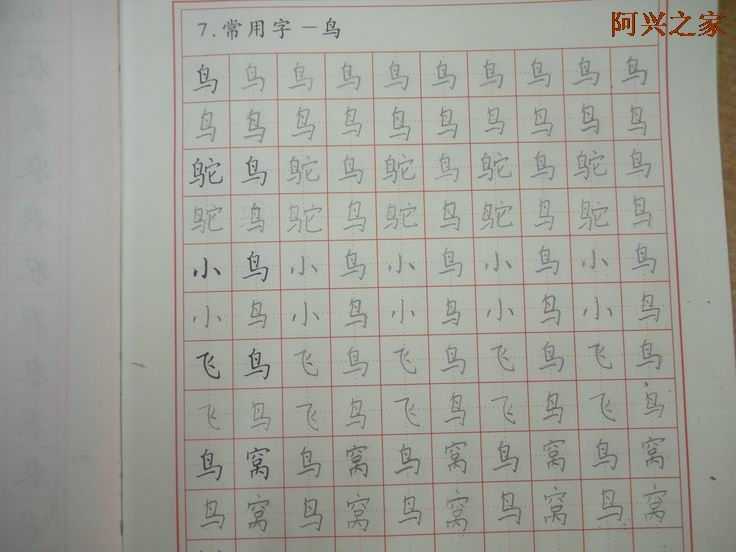 阿兴之家
7.常用字－鸟
鸟鸟鸟鸟鸟鸟鸟鸟鸟鸟
鸟鸟鸟鸟鸟鸟鸟鸟鸟鸟
鸵鸟鸵鸟鸵鸟鸵鸟鸵鸟
鸵鸟鸵鸟鸵鸟鸵鸟鸵鸟
小鸟小鸟小鸟小鸟小鸟
小鸟小鸟小鸟小鸟小鸟
飞鸟飞鸟飞鸟飞鸟飞鸟
飞鸟飞鸟飞鸟飞鸟飞鸟
鸟窝鸟窝鸟窝鸟窝鸟窝
鸟窝鸟窝鸟窝鸟窝鸟窝